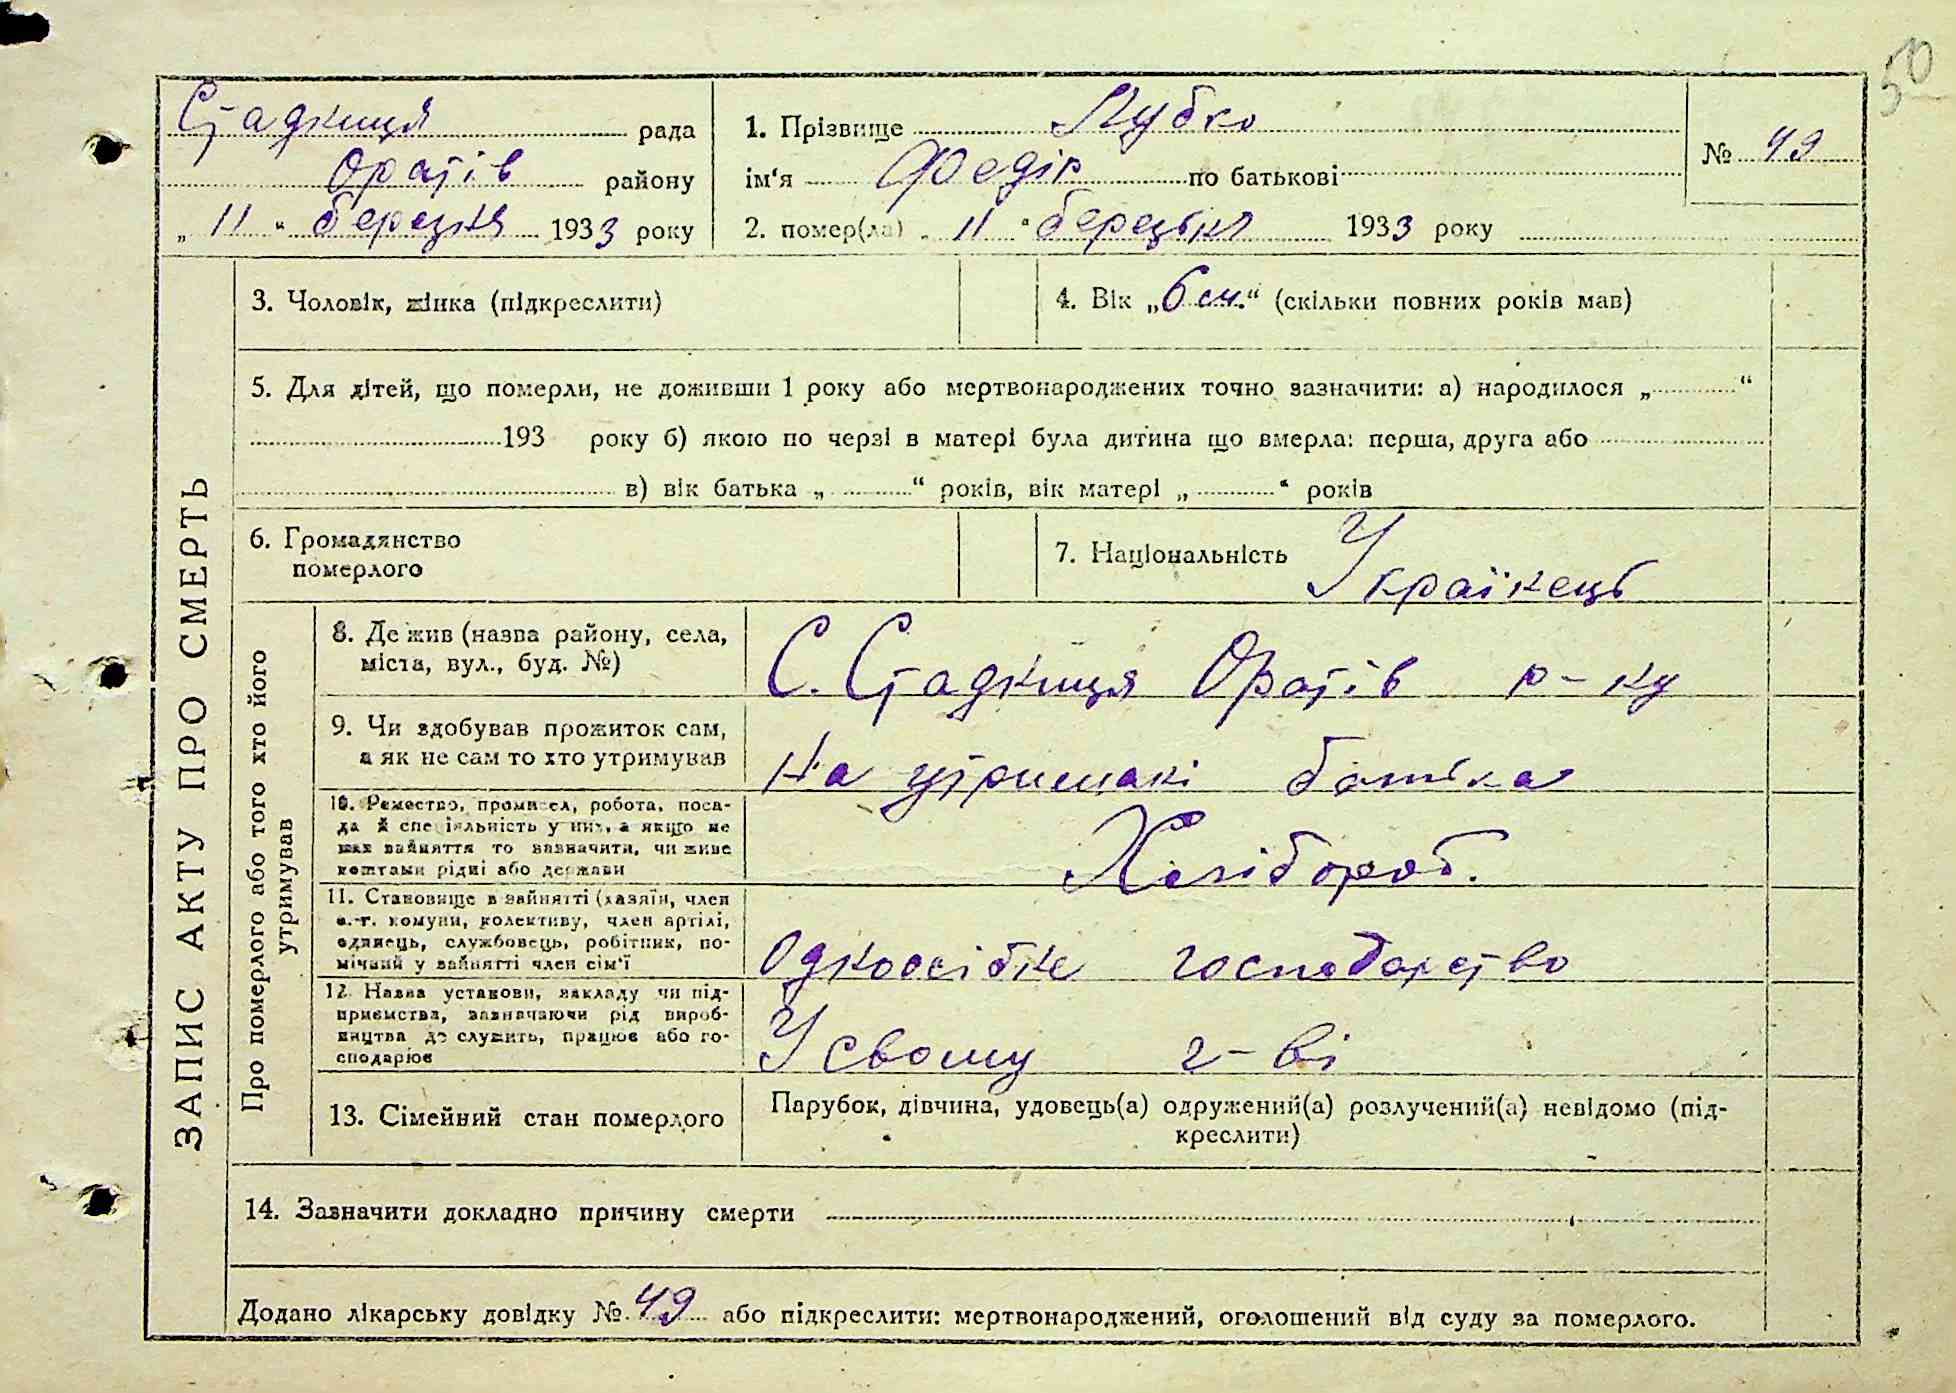 50
Стадниця рада
Оратів району
„ 11 “ березня 1933 року
1. Прізвище Лубко
ім‘я Федір по батькові
2. помер(ла) „ 11 “ березьня 1933 року
№ 49
3. Чоловік, жінка (підкреслити)
4. Вік „6 м.“ (скільки повних років мав)
5. Для дітей, що померли, не доживши 1 року або мертвонароджених точно зазначити: а) народилося „ “
193 року б) якою по черзі в матері була дитина що вмерла: перша, друга або
в) вік батька „ “ років, вік матері „ “ років
6. Громадянство
померлого
7. Національність Українець
ЗАПИС АКТУ ПРО СМЕРТЬ
Про померлого або того хто його
утримував
8. Де жив (назва району, села,
міста, вул., буд. №)
С. Стадниця Оратів р-ну
9. Чи здобував прожиток сам,
а як не сам то хто утримував
На утримані батька
10. Ремество, промисел, робота, поса-
да й спеціяльність у них, а якщо не
мав зайняття то зазначити, чи живе
коштами рідні або держави
Хлібороб.
11. Становище в зайнятті (хазяїн, член
с.-г. комуни, колективу, член артілі,
одинець, службовець, робітник, по-
мічний у зайнятті член сім‘ї
Одноосібне господарство
12. Назва установи, закладу чи під-
приємства, зазначаючи рід вироб-
ництва де служить, працює або го-
сподарює
У свому г-ві
13. Сімейний стан померлого
Парубок, дівчина, удовець(а) одружений(а) розлучений(а) невідомо (під-
креслити)
14. Зазначити докладно причину смерти
Додано лікарську довідку № 49 або підкреслити: мертвонароджений, оголошений від суду за померлого.